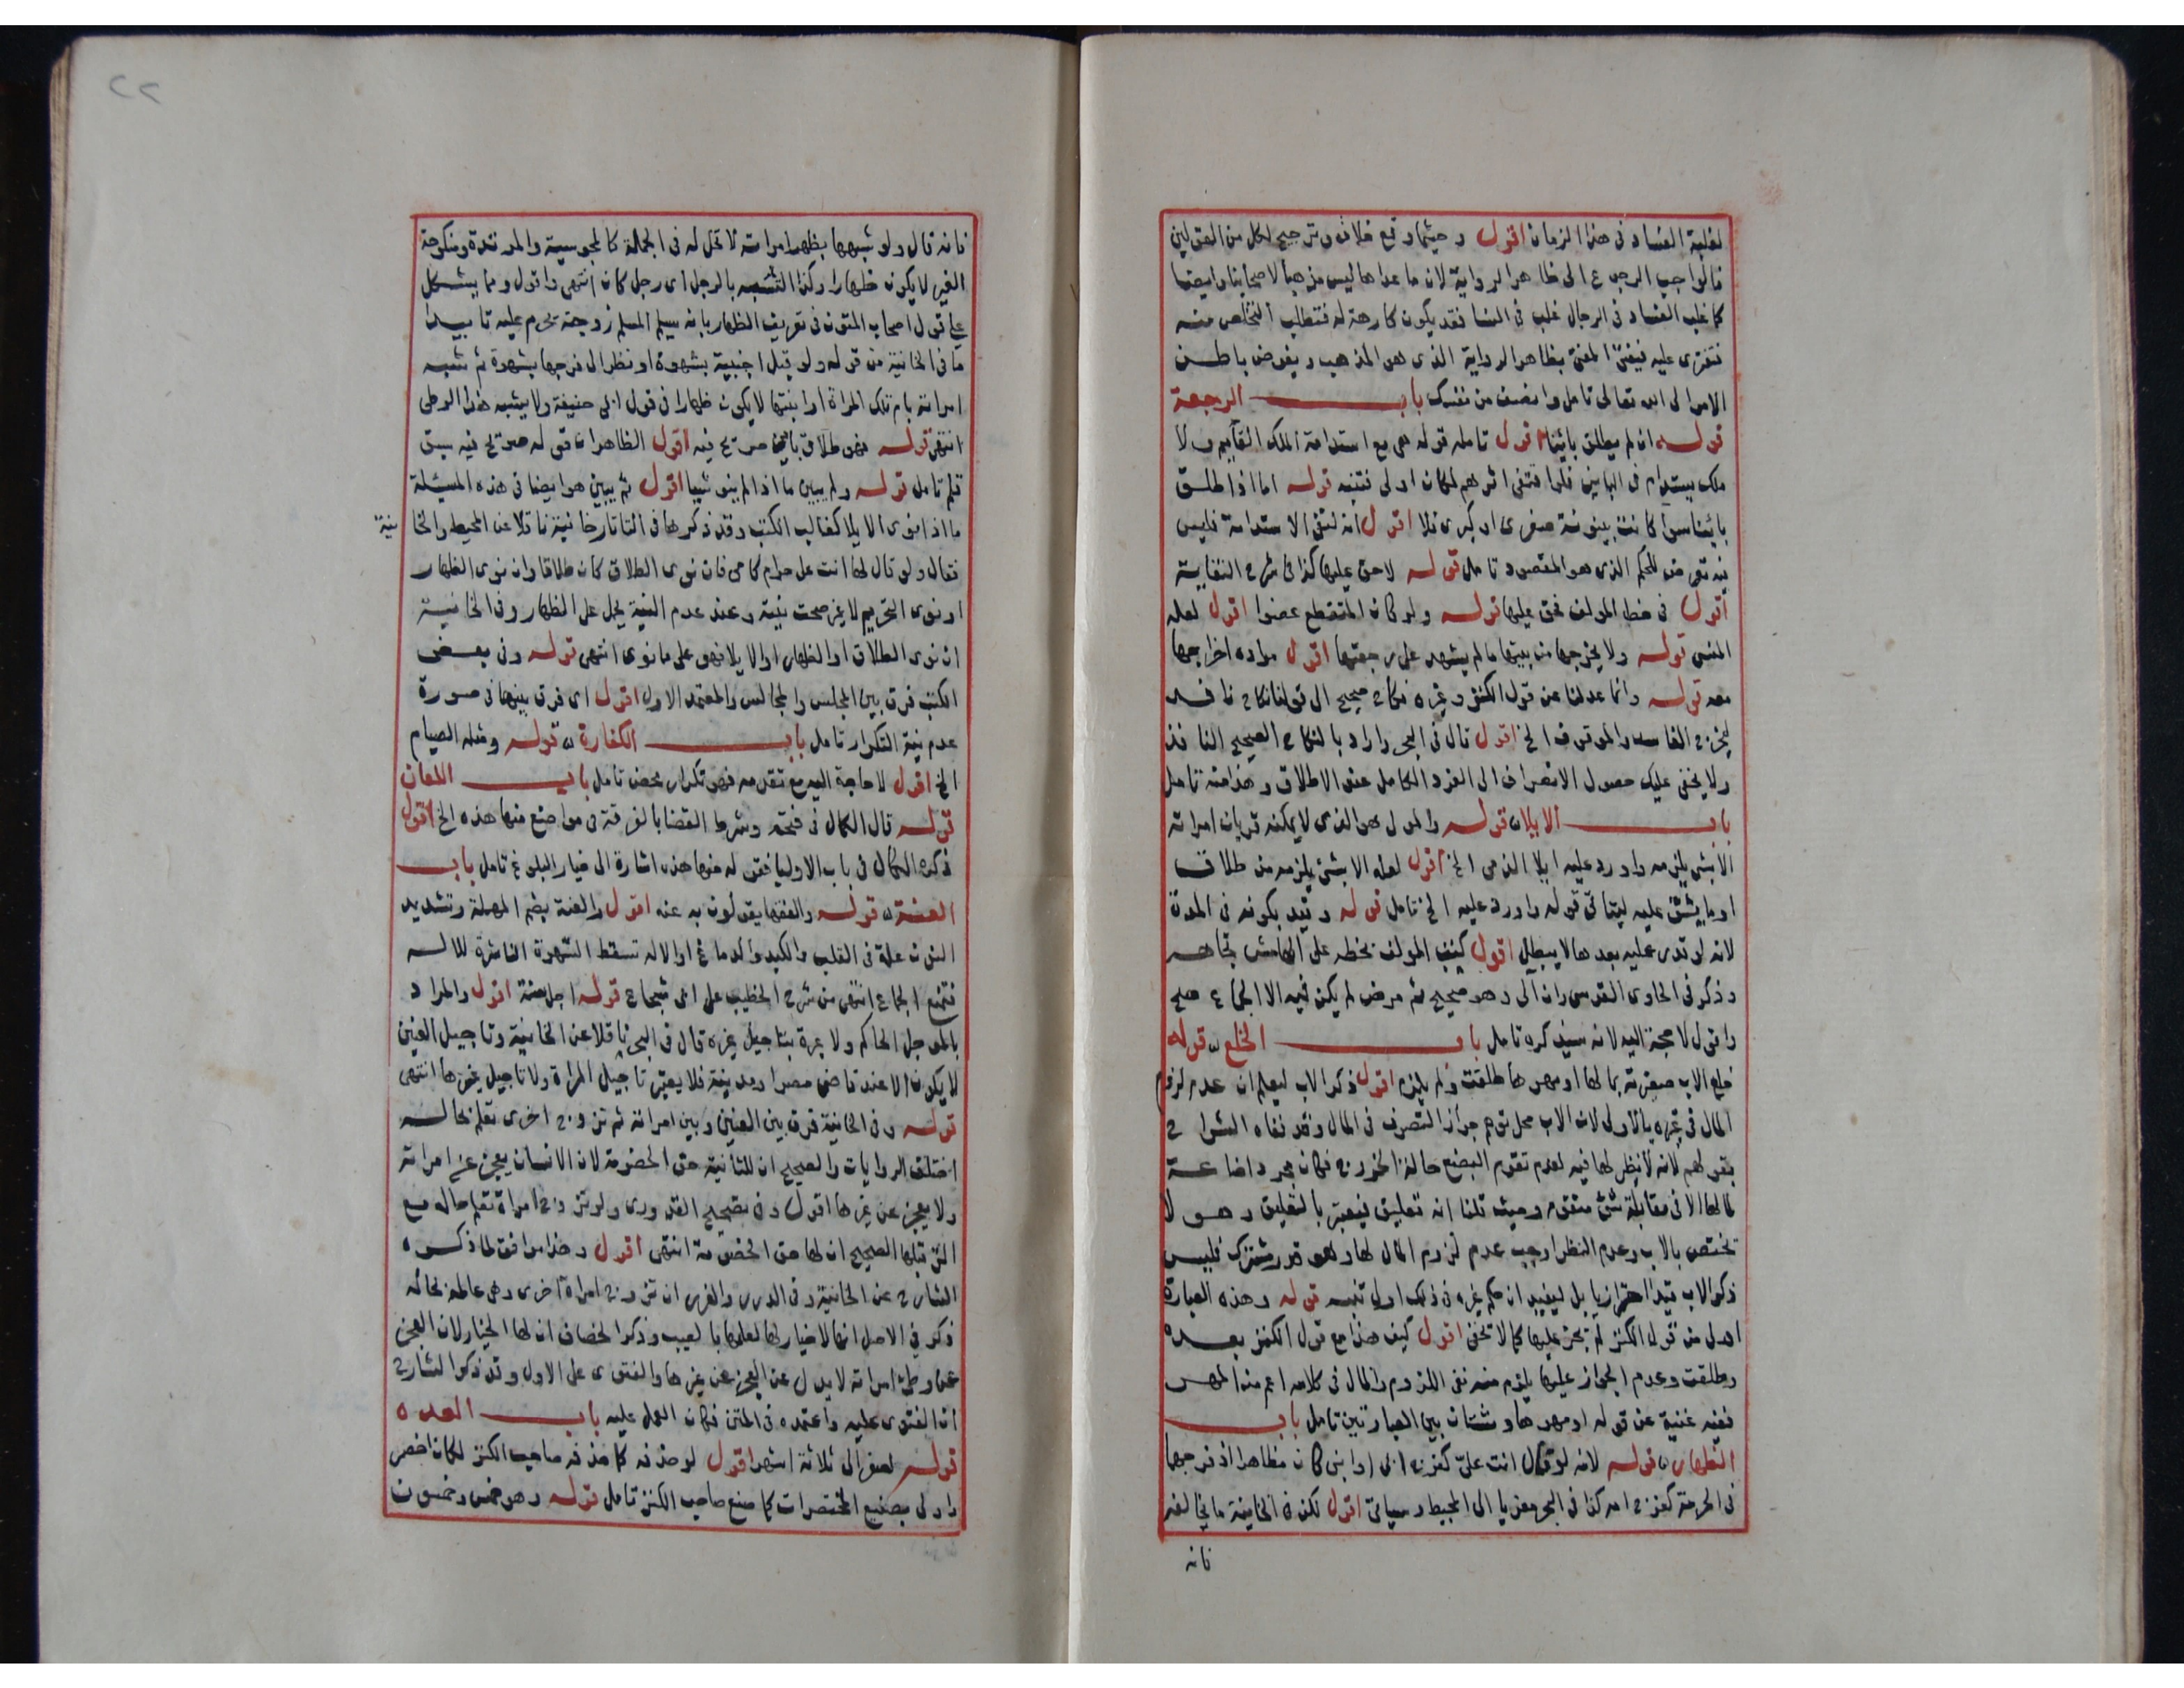 لغلبة الفساد فى هذا الزمان اقول وحيثما وقع خلاف وترجيح لكل من القولين
فالواجب الرجوع الى ظاهر الرواية لان ما عداها ليس مذهبا لاصحابنا وايضا
كما غلب الفساد فى الرجال غلب فى النسا فقد يكون كارهة له فتطلب التخلص منه
فتفترى عليه فيفتى المفتى بظاهر الرواية الذى هو المذهب ويفوض باطن
الامر الى الله تعالى تامل وانصف من نفسك باب الرجعة
قوله ان لم يطلق بائنا اقول تامله قوله هى مع استدامة الملك القايم ولا
ملك يستدام فى الباين فلو اقتفى اثرهم لكان اولى فتنبه قوله اما اذا طلق
بائنا سوا كانت بينونة صغرى او كبرى فلا اقول انه لنفى الاستدامة فليس
فيه تعرض للحكم الذى هو المقصود تامل قوله لاحق عليها كذا فى شرح النقاية
اقول فى خط المولف فحق عليها قوله ولو كان المنقطع عضوا اقول لعله
المنسى قوله ولا يخرجها من بيتها ما لم يشهد على رجعتها اقول مراده اخراجها
معه قوله وانما عدلنا عن قول الكنز وغيره نكاح صحيح الى قولنا نكاح نافذ
ليخرج الفاسد والموقوف الخ اقول قال فى البحر واراد بالنكاح الصحيح النافذ
ولا يخفى عليك حصول الانصراف الى الفرد الكامل عند الاطلاق وهذا منه تامل
باب الايلاء قوله والمولى هو الذى لا يمكنه قربان امراته
الا بشى يلزمه واورد عليه ايلا الذمى الخ اقول لعله الا بشئ يلزمه من طلاق
او ما يشق عليه ليتاتى قوله واورد عليه الخ تامل قوله وقيد بكونه فى المدة
لانه لو قدر عليه بعدها لا يبطل اقول كتب المولف بخطه على الهامش تجاهه
وذكر فى الحاوى القدسى وان الى وهو صحيح ثم مرض لم يكن فيه الا الجماع صح
واقول لا حجة اليه لانه سيذكره تامل باب الخلع قوله
خلع الاب صغيرته بما لها او مهرها طلقت ولم يلزم اقول ذكر الاب ليعلم ان عدم لزوم
المال فى غيره بالاولى لان الاب محل توهم جواز التصرف فى المال وقد نفاه الشراح
بقولهم لانه لا نظر لها فيه لعدم تقوم البضع حالة الخروج فكان مجرد اضاعة
مالها الا فى مقابلة شئ متقوم وحيث قلنا انه تعليق فيعتبر بالتعليق وهو لا
تختص بالاب وعدم النظر اوجب عدم لزوم المال لها وهو قدر مشترك فليس
ذكر الاب قيدا احترازيا بل ليفيد ان حكم غيره فى ذلك اولى تنبه قوله وهذه العبارة
اولى من قول الكنز لم يجز عليها كما لا يخفى اقول كيف هذا مع قول الكنز بعده
وطلقت وعدم الجواز عليها يلزم منه نفى اللزوم والمال فى كلامه اعم من المهر
ففيه غنية عن قوله او مهرها وشتان بين العبارتين تامل باب
الظهار قوله لانه لو قال انت علىّ كفرج ابى او ابنى كان مظاهرا اذ فرجهما
فى الحرمة كفرج امه كذا فى البحر معزيا الى المحيط وسياتى اقول لكن فى الخانية ما يخالفه
فانه
٢٢
فانه قال ولو شبهها بظهر امراة لا تحل له فى الجملة كالمجوسية والمرتدة ومنكوحة
الغير لا يكون ظهارا وكذا التشبيه بالرجل اى رجل كان انتهى واقول ومما يشكل
على قول اصحاب المتون فى تعريف الظهار بانه تشبيه المسلم زوجته بمحرم عليه تابيدا
ما فى الخانية من قوله ولو قبل اجنبية بشهوة او نظر الى فرجها بشهوة ثم شبه
امراته بام تلك المراة او ابنتها لا يكون ظهارا فى قول ابى حنيفة ولا يشبه هذا الوطى
انتهى قوله فهو طلاق باين صرح فيه اقول الظاهر ان قوله صرح فيه سبق
قلم تامل قوله ولم يبين ما اذا لم ينو شيا اقول ثم يبين هو ايضا فى هذه المسئلة
ما اذا نوى الايلا كغالب الكتب وقد ذكرها فى التاتارخانية ناقلا عن المحيط والخا
نية
فقال ولو قال لها انت على حرام كامى فان نوى الطلاق كان طلاقا وان نوى الظهار
او نوى التحريم لا غير صحت نيته وعند عدم النية يحمل على الظهار وفى الخانية
ان نوى الطلاق او الظهار او الايلا فهو على ما نوى انتهى قوله وفى بعض
الكتب فرق بين المجلس والمجالس والمعتمد الاول اقول اى فرق بينهما فى صورة
عدم نية التكرار تامل باب الكفارة قوله ومثله الصيام
الخ اقول لا حاجة اليه مع تقدمه فهو تكرار محض تامل باب اللعان
قوله قال الكمال فى فتحه وشرط القضا بالفرقة فى مواضع منها هذه الخ اقول
ذكره الكمال فى باب الاوليا فقوله منها هذه اشارة الى خيار البلوغ تامل باب
العنة قوله والفقها يقولون به عنة اقول والعنة بضم المهملة وتشديد
النون علة فى القلب والكبد والدماغ او الالة تسقط الشهوة الناشرة للالة
فتمنع الجماع انتهى من شرح الخطيب على ابى شجاع قوله اجل سنة اقول والمراد
بالموجل الحاكم ولا عبرة بتاجيل غيره قال فى البحر ناقلا عن الخانية وتاجيل العنين
لا يكون الا عند قاضى مصر او مدينة فلا يعتبر تاجيل المراة ولا تاجيل غيرها انتهى
قوله وفى الخانية فرق بين العنين وبين امراته ثم تزوج اخرى تعلم بحاله
اختلف الروايات والصحيح ان للثانية حق الخصومة لان الانسان يعجز عن امراة
ولا يعجز عن غيرها اقول وفى تصحيح القدورى ولو تزوج امراة تعلم حاله مع
التى قبلها الصحيح ان لها حق الخصومة انتهى اقول وهذا موافق لما ذكره
الشارح عن الخانية وفى الدرر والغرر ان تزوج امراة اخرى وهى عالمة بحاله
ذكر فى الاصل انها لا خيار لها لعلمها بالعيب وذكر الخصاف ان لها الخيار لان العجز
عن وطئ امراة لا يدل عن العجز عن غيرها والفتوى على الاول وقد ذكر الشارح
ان الفتوى عليه واعتمده فى المتن فكان العمل عليه باب العدة
قوله لصغر الى ثلاثة اشهر اقول لو حذفه كما حذفه صاحب الكنز لكان اخصر
واولى بصنيع المختصرات كما صنع صاحب الكنز تامل قوله وهو خمس وخمسون